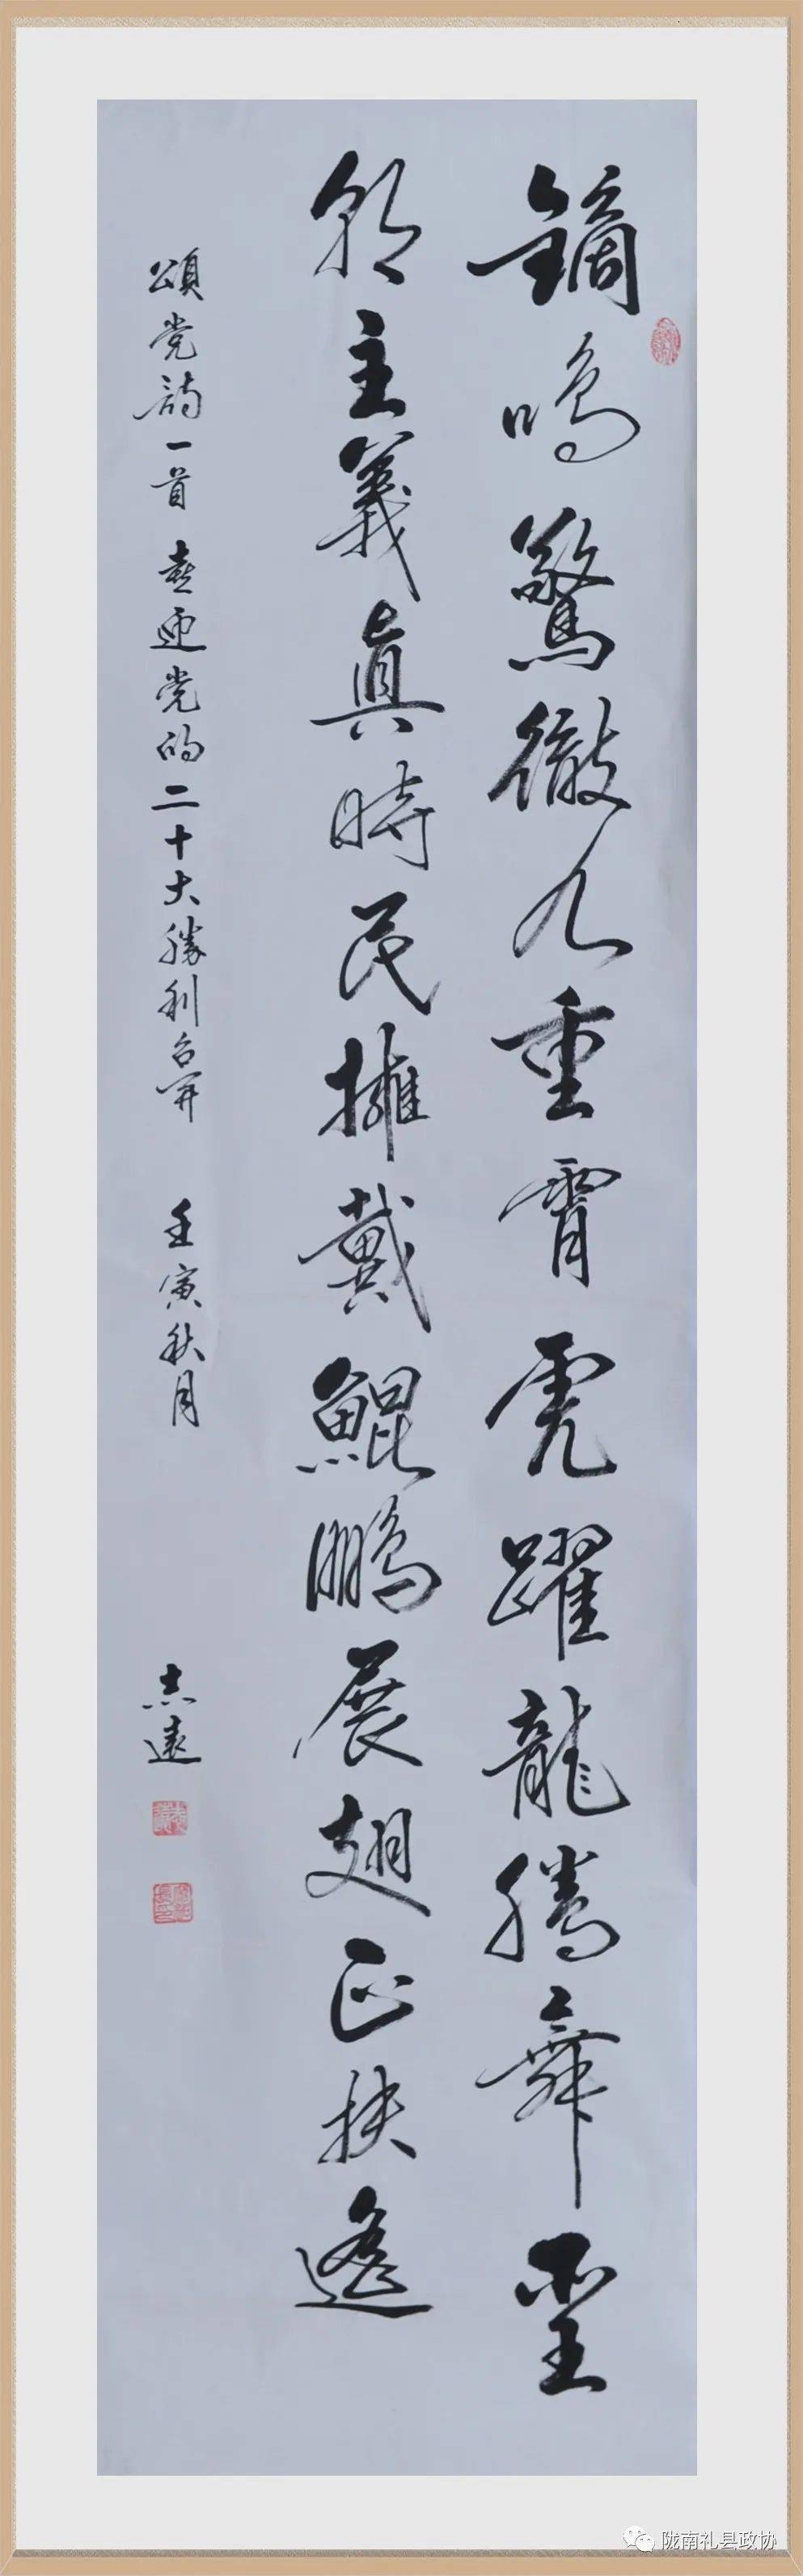 鏑鳴驚徹九重霄虎躍龍騰舞聖
朝主義真時民擁戴鯤鵬展翅正扶遙
頌党詩一首 喜迎党的二十大勝利召開 壬寅秋月 志遠
陇南礼县政协